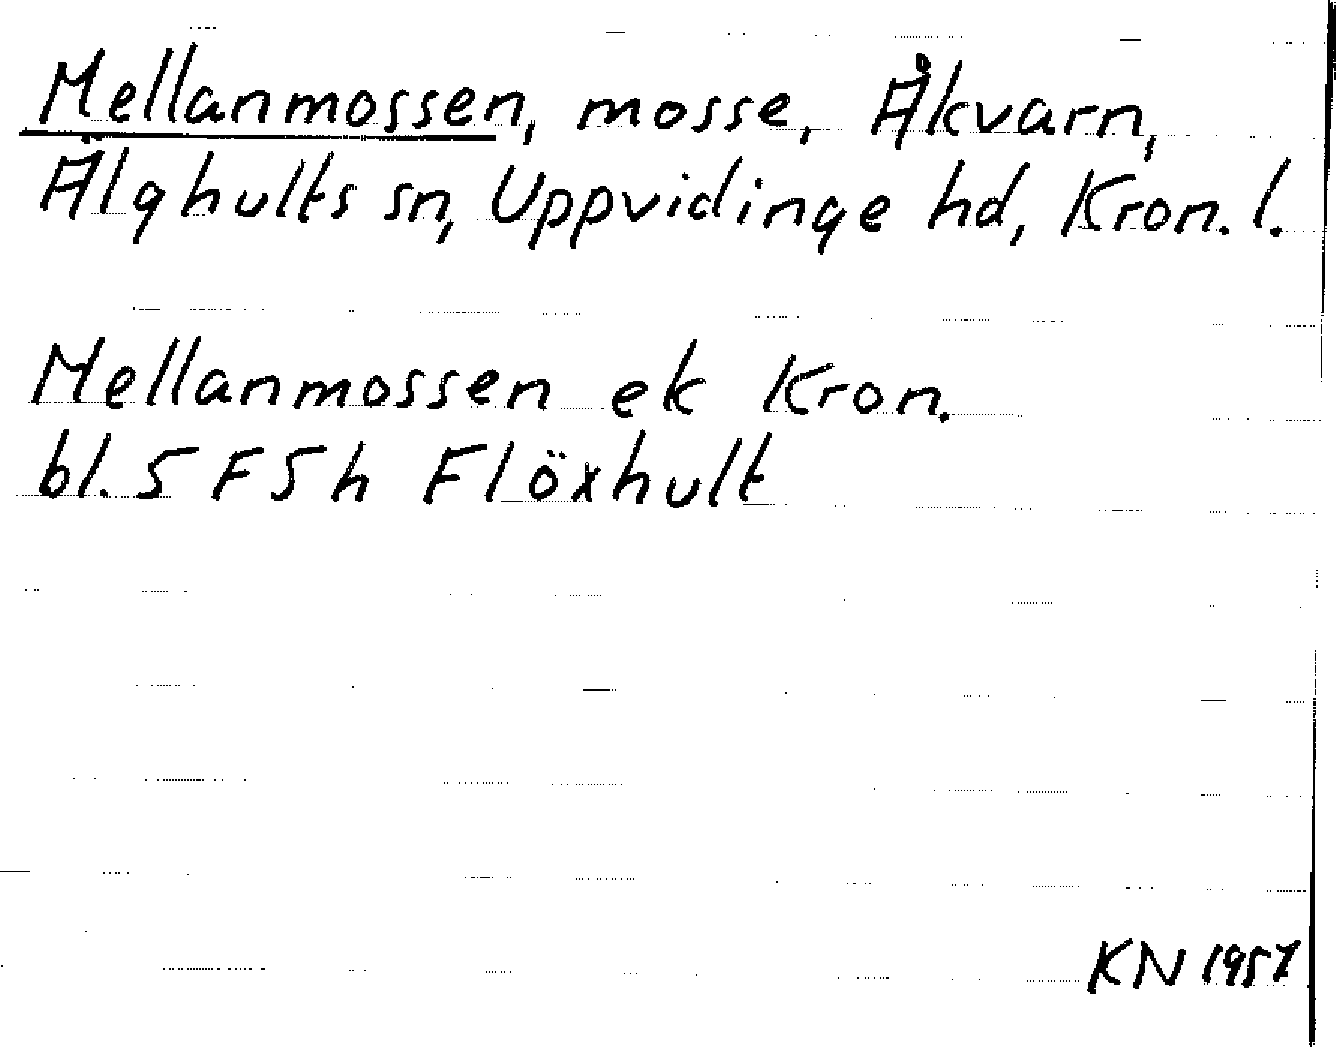 Mellanmossen, mosse, Åkvarn,
Älghults sn, Uppvidinge hd, Kron. l.
Mellanmossen ek Kron.
bl. 5 F5h Flöxhult
KN 1957